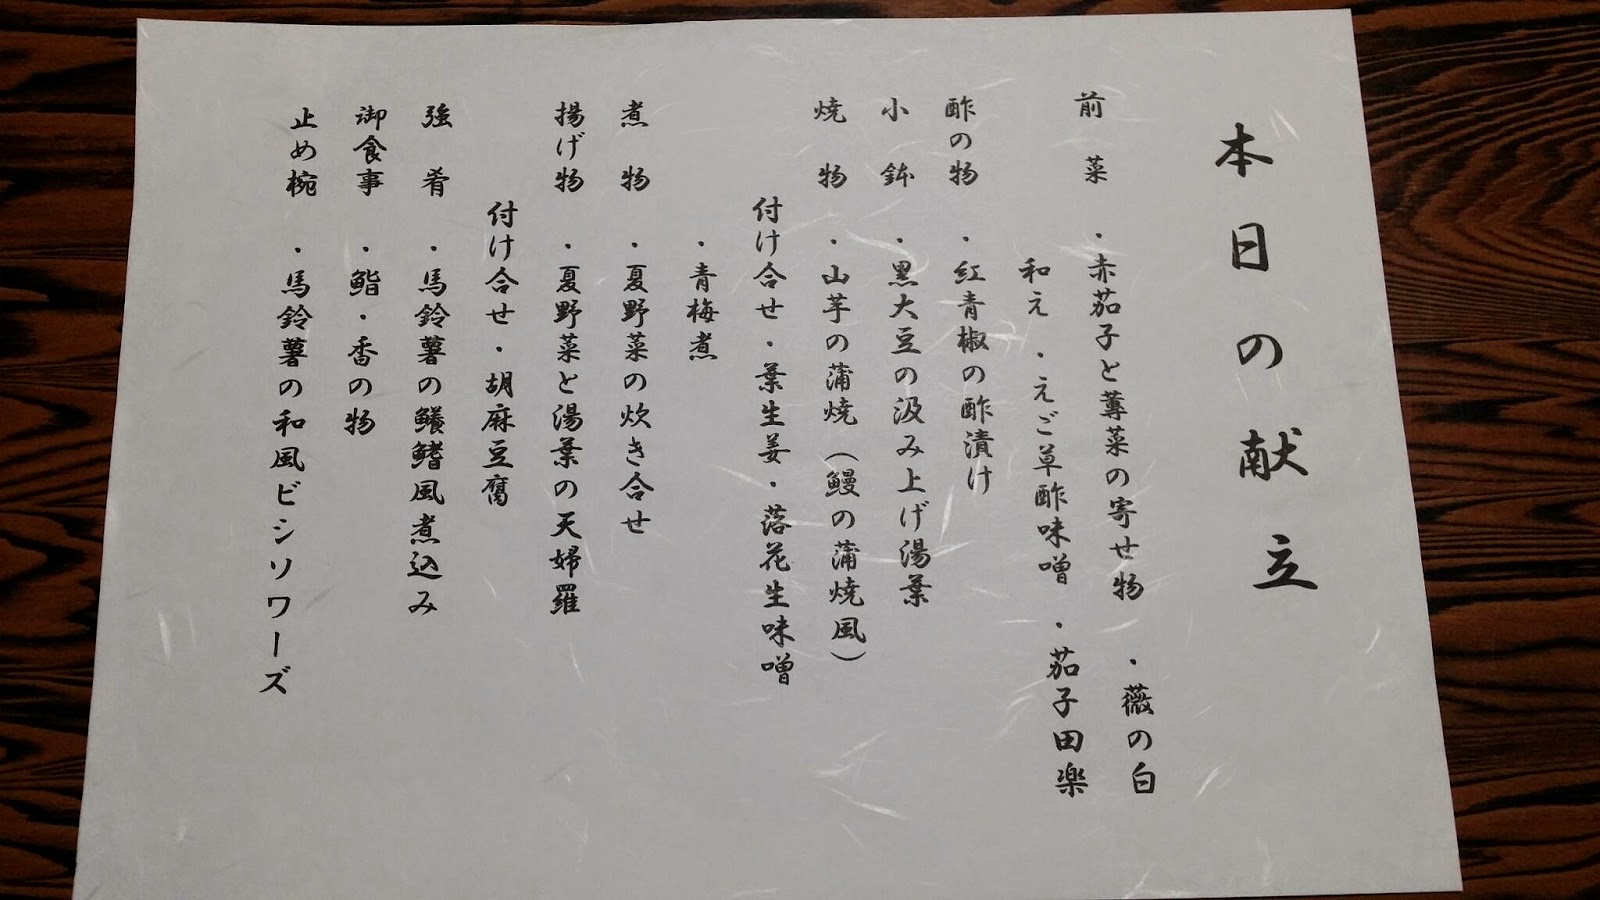 本日の献立
前菜 ・赤茄子と蓴菜の寄せ物 ・薇の白
和え ・えご草酢味噌 ・茄子田楽
酢の物 ・紅青椒の酢漬け
小鉢 ・黒大豆の汲み上げ湯葉
焼物 ・山芋の蒲焼(鰻の蒲焼風)
付け合せ・葉生姜・落花生味噌
・青梅煮
煮物 ・夏野菜の炊き合せ
揚げ物 ・夏野菜と湯葉の天婦羅
付け合せ・胡麻豆腐
強肴 ・馬鈴薯の鱶鰭風煮込み
御食事 ・鮨・香の物
止め椀 ・馬鈴薯の和風ビシソワーズ